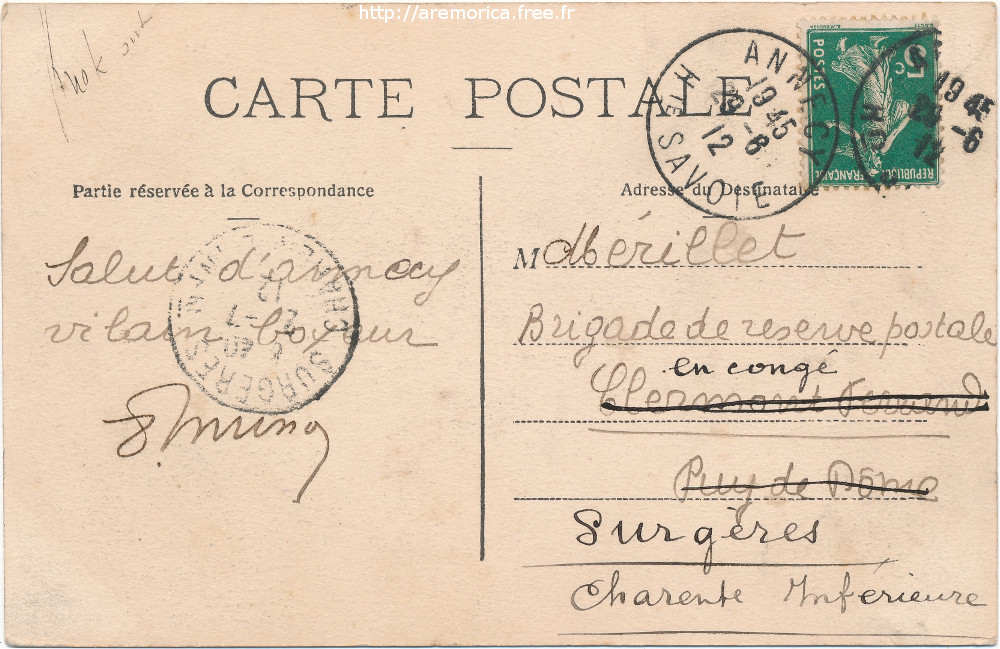 http://aremorica.free.fr
CARTE POSTALE
ANNECY
19 45
29 -6
12
Hte SAVOIE
5c
POSTES
REPUBLIQUE FRANÇAISE
19 45
-6
12
Partie réservée à la Correspondance
Adresse du Destinataire
Salut d'annecy
vilain boxeur
SURGERES
CHARENTE INFRE
1 -7
12
M Mérillet
Brigade de reserve postale
en congé
Clermont Ferrand
Puy de Dôme
Surgères
Charente Inférieure